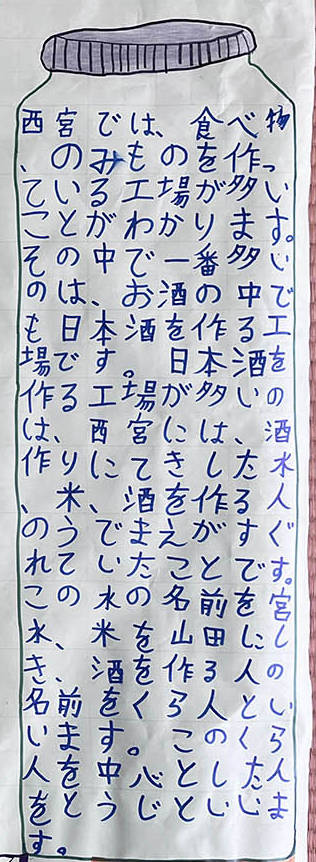 西宮では、食べ物
、のみものを作っ
ている工場が多い
ことがわかります。
その中で一番多い
のは、お酒の中で
も日本酒を作る工
場です。日本酒を
作る工場が多いの
は、西宮には、酒
作りに、てきした水
、米、酒を作る人
のうでまえがすぐ
れていたことです。
この水の名前を宮
水、米を山田にし
き、酒を作る人の
名前をくら人とい
います。このくら
人を中心とした人
をとうじといいま
す。